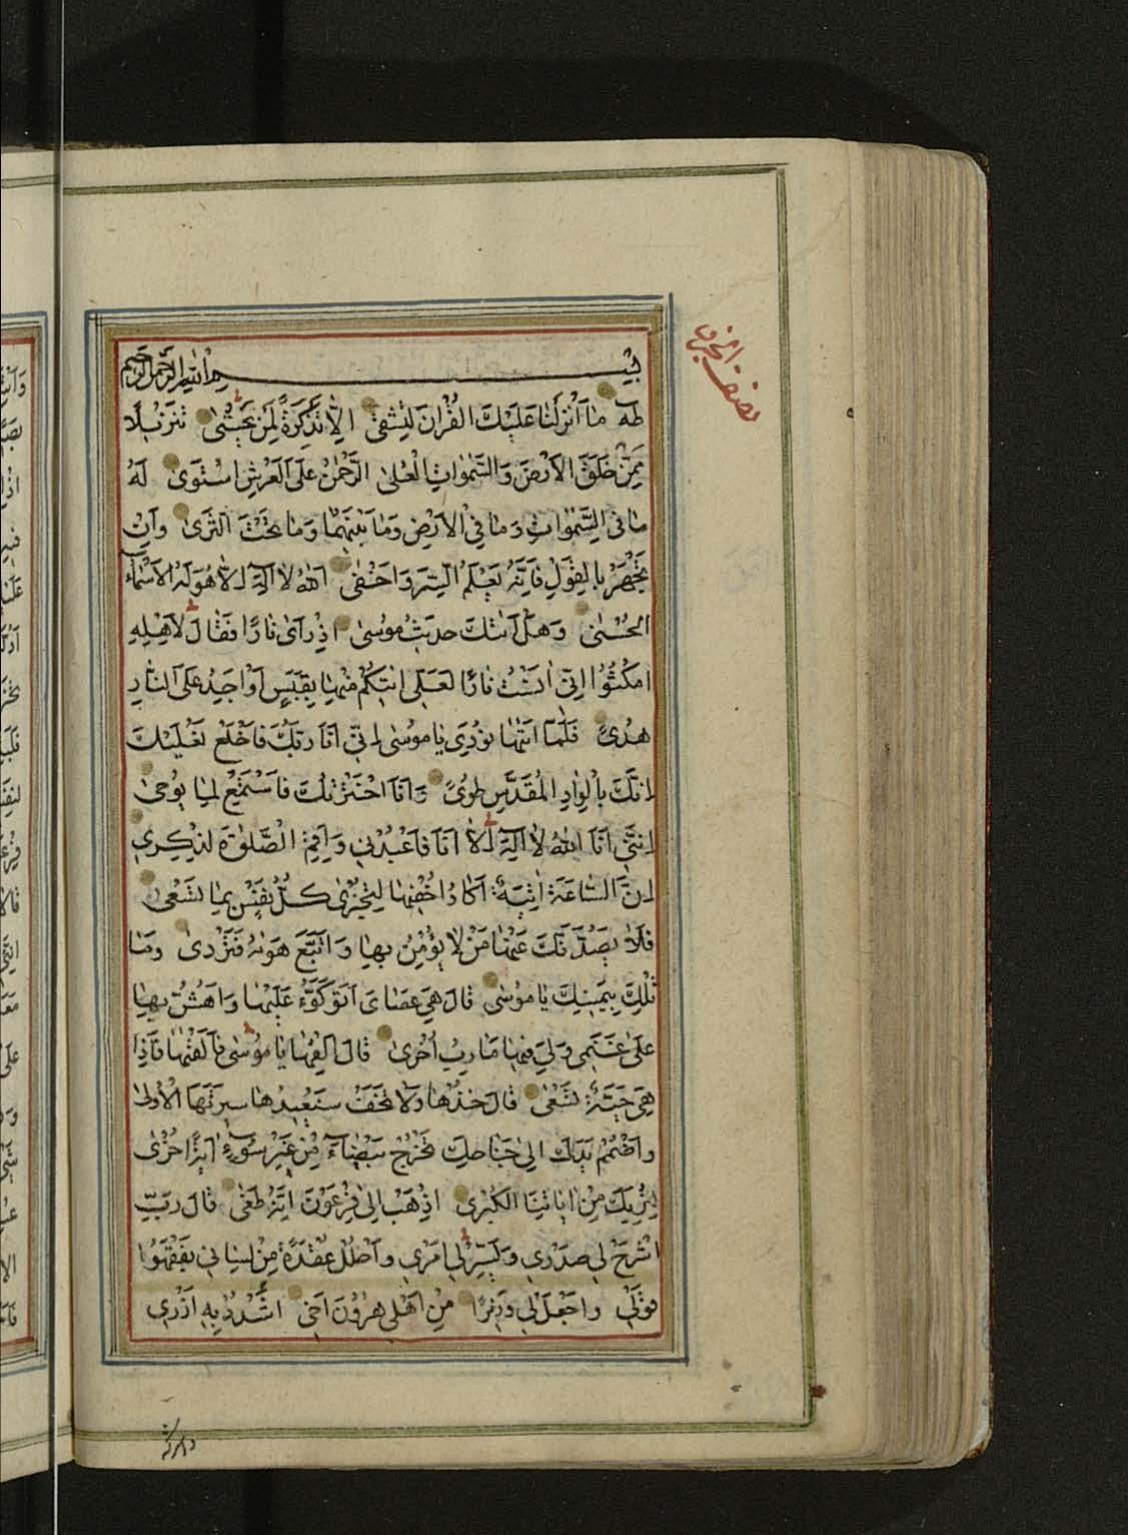 بِسْمِ اللهِ الرَّحْمٰنِ الرَّحِيمِ
طٰهٰ مٰا اَنْزَلْنٰا عَلَيْكَ الْقُرْاٰنَ لِتَشْقىٰ اِلّاٰ تَذْكِرَةً لِمَنْ يَخْشىٰ تَنْزِيلًا
مِمَّنْ خَلَقَ الْاَرْضَ وَالسَّمٰوٰاتِ الْعُلىٰ الرَّحْمٰنُ عَلَى الْعَرْشِ اسْتَوىٰ لَهُ
مٰا فِى السَّمٰوٰاتِ وَمٰا فِي الْاَرْضِ وَمٰا بَيْنَهُمٰا وَمٰا تَحْتَ الثَّرىٰ وَاِنْ
تَجْهَرْ بِالْقَوْلِ فَاِنَّهُ يَعْلَمُ السِّرَّ وَاَخْفىٰ اَللهُ لاٰ اِلٰهَ اِلّاٰ هُوَ لَهُ الْاَسْمٰاۤءُ
الْحُسْنىٰ وَهَلْ اَتٰىكَ حَدِيثُ مُوسىٰ اِذْ رَاىٰ نٰارًا فَقٰالَ لِاَهْلِهِ
امْكُثُوا اِنّي اٰنَسْتُ نٰارًا لَعَلّي اٰتِيكُمْ مِنْهٰا بِقَبَسٍ اَوْ اَجِدُ عَلَى النّٰارِ
هُدىً فَلَمّٰا اَتٰيهٰا نُودِيَ يٰا مُوسىٰ اِنّي اَنَا رَبُّكَ فَاخْلَعْ نَعْلَيْكَ
اِنَّكَ بِالْوٰادِ الْمُقَدَّسِ طُوىً وَاَنَا اخْتَرْتُكَ فَاسْتَمِعْ لِمٰا يُوحىٰ
اِنَّنِي اَنَا اللهُ لاٰ اِلٰهَ اِلّاٰ اَنَا فَاعْبُدْنِي وَاَقِمِ الصَّلٰوةَ لِذِكْرِي
اِنَّ السّٰاعَةَ اٰتِيَةٌ اَكٰادُ اُخْفِيهٰا لِتُجْزىٰ كُلُّ نَفْسٍ بِمٰا تَسْعىٰ
فَلاٰ يَصُدَّنَّكَ عَنْهٰا مَنْ لاٰ يُؤْمِنُ بِهٰا وَاتَّبَعَ هَوٰيهُ فَتَرْدىٰ وَمٰا
تِلْكَ بِيَمِينِكَ يٰا مُوسىٰ قٰالَ هِيَ عَصٰايَ اَتَوَكَّؤُ عَلَيْهٰا وَاَهُشُّ بِهٰا
عَلىٰ غَنَمِي وَلِيَ فِيهٰا مَاٰرِبُ اُخْرىٰ قٰالَ اَلْقِهٰا يٰا مُوسىٰ فَاَلْقٰيهٰا فَاِذٰا
هِيَ حَيَّةٌ تَسْعىٰ قٰالَ خُذْهٰا وَلاٰ تَخَفْ سَنُعِيدُهٰا سِيرَتَهَا الْاُولىٰ
وَاضْمُمْ يَدَكَ اِلىٰ جَنٰاحِكَ تَخْرُجْ بَيْضٰاۤءَ مِنْ غَيْرِ سُوۤءٍ اٰيَةً اُخْرىٰ
لِنُرِيَكَ مِنْ اٰيٰاتِنَا الْكُبْرىٰ اِذْهَبْ اِلىٰ فِرْعَوْنَ اِنَّهُ طَغىٰ قٰالَ رَبِّ
اشْرَحْ لِي صَدْرِي وَيَسِّرْ لِي اَمْرِي وَاحْلُلْ عُقْدَةً مِنْ لِسٰانِي يَفْقَهُوا
قَوْلِي وَاجْعَلْ لِي وَزِيرًا مِنْ اَهْلِي هٰرُونَ اَخِي اُشْدُدْ بِهِ اَزْرِي
نصف الحزب